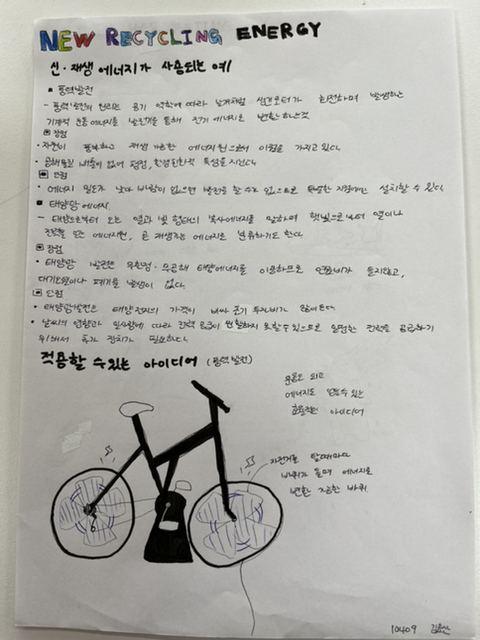 NEW RECYCLING ENERGY
신·재생 에너지가 사용되는 예시
풍력발전
- 풍력 발전의 원리는 공기 역학에 따라 날개처럼 생긴 로터가 회전하며 발생하는
기계적 운동에너지를 발전기를 통해 전기 에너지로 변환하는것
장점
· 자원이 풍부하고 재생 가능한 에너지원으로서 이점을 가지고 있다.
· 공해물질 배출이 없어 청정, 환경친화적 특성을 지닌다.
단점
· 에너지 밀도가 낮아 바람이 없으면 발전을 할 수 없으므로 특정한 지역에만 설치할 수 있다.
태양광 에너지
- 태양으로부터 오는 열과 빛 형태의 복사에너지를 말하며 햇빛으로부터 열이나
전력을 얻는 에너지원, 곧 재생하는 에너지로 분류하기도 한다.
장점
· 태양광 발전은 무한정·무공해 태양에너지를 이용하므로 연료비가 들지않고,
대기오염이나 폐기물 발생이 없다.
단점
· 태양광발전은 태양전지의 가격이 비싸 초기 투자비가 많이든다.
· 날씨의 영향과 일사량에 따라 전력 공급이 원활하지 못할수 있으므로 일정한 전력을 공급하기
위해서 추가 장치가 필요하다.
적용할 수 있는 아이디어 (풍력 발전)
운동도 되고
에너지도 얻을수 있는
효율적인 아이디어
자전거를 탈때마다
바퀴가 돌며 에너지로
변환 가능한 바퀴.
10409